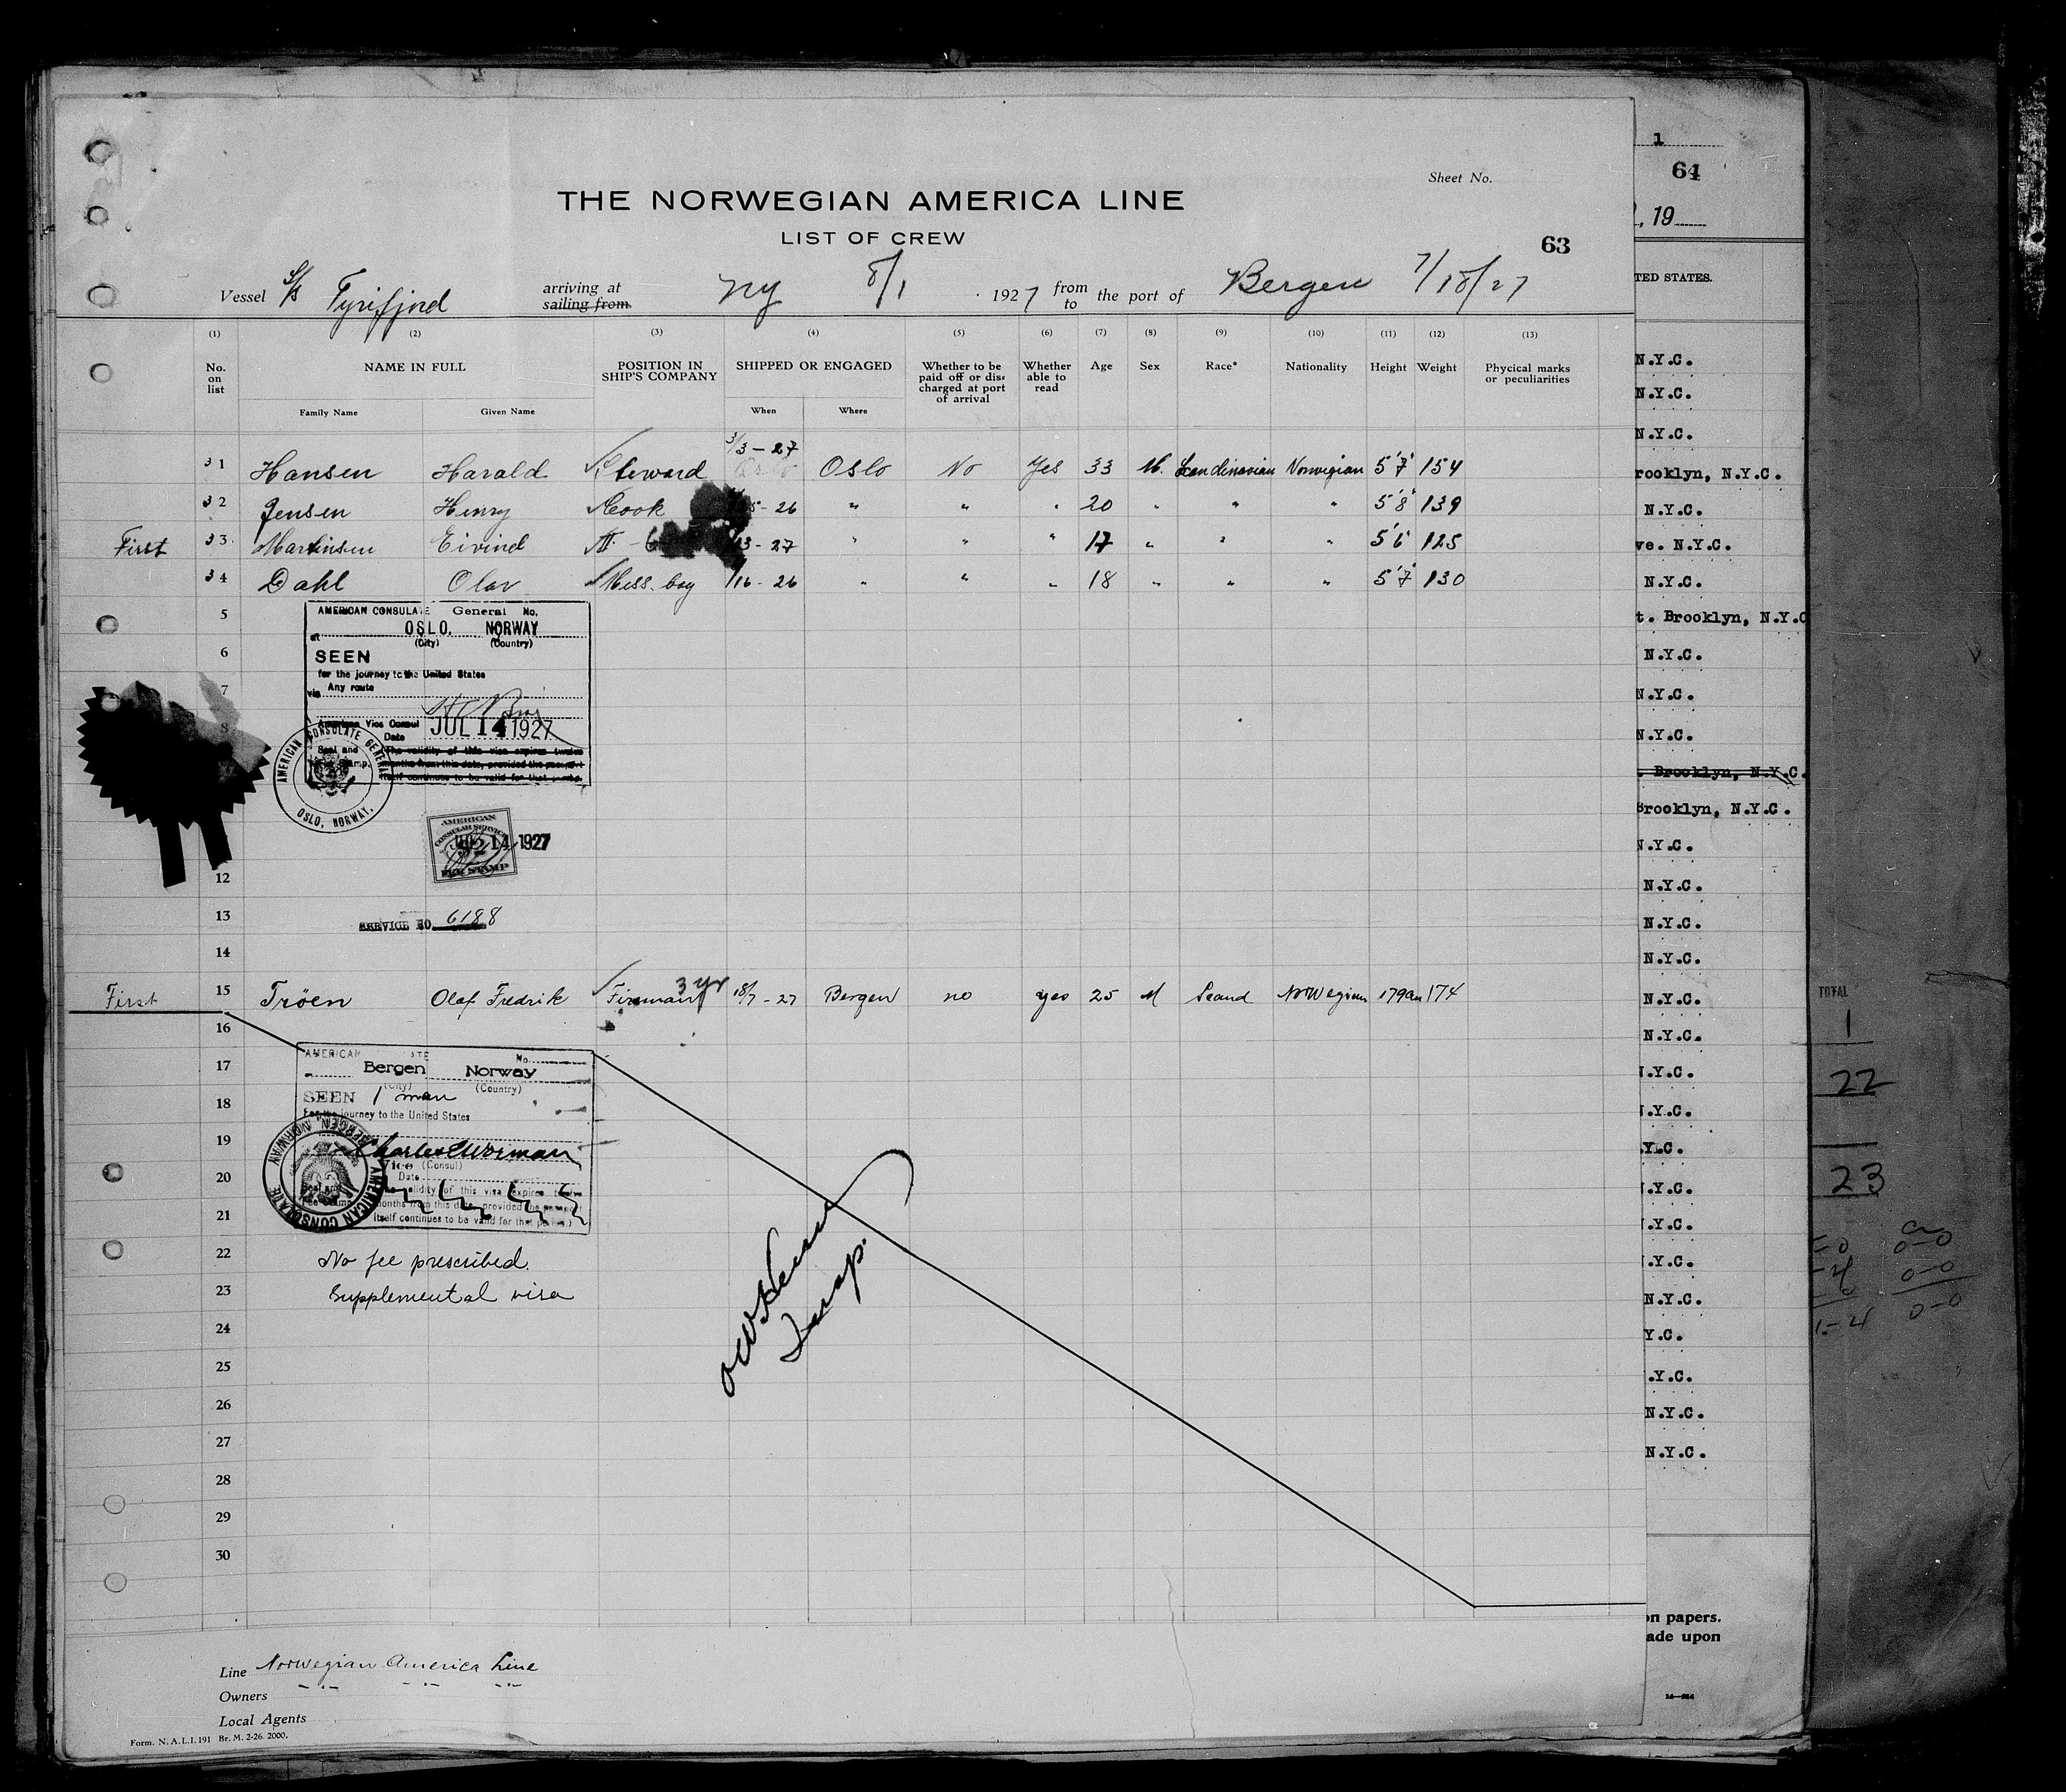 1
64
, 19
Sheet No.
THE NORWEGIAN AMERICA LINE
LIST OF CREW
63
TED STATES.
Vessel S/S Tyrifjord arriving at sailing from NY 8/1 1927 from to the port of Bergen 7/18/27
(1) (2) (3) (4) (5) (6) (7) (8) (9) (10) (11) (12) (13)
No. on list NAME IN FULL POSITION IN SHIP'S COMPANY SHIPPED OR ENGAGED Whether to be paid off or discharged at port of arrival Whether able to read Age Sex Race* Nationality Height Weight Physical marks or peculiarities
Family Name Given Name When Where
31 Hansen Harald Steward 3/3-27 Oslo No Yes 33 M. Scandinavian Norwegian 5'7" 154
32 Jensen Henry Cook 5-26 " " " 20 " " " 5'8" 139
First 33. Martinsen Eivind 13-27 " " " 17 " " " 5'6" 125
34 Dahl Olav Mess-boy 16-26 " " " 18 " " " 5'7" 130
5
AMERICAN CONSULATE General No.
at OSLO, NORWAY
(City) (Country)
6
SEEN
for the journey to the United States
7
via Any route
8
American Vice Consul
Date JUL 14 1927
Seal and
The validity of this visa expires twelve
months from this date, provided the passport
itself continues to be valid for that period.
AMERICAN CONSULATE GENERAL
OSLO, NORWAY.
AMERICAN
CONSULAR SERVICE
JUL 14 1927
FEE STAMP
12
13
SERVICE NO. 6188
14
First 15 Tröen Olaf Fredrik Fireman 3 yr 18/7-27 Bergen no yes 25 M Scand Norwegian 179cm 174
16
AMERICAN No.
17
Bergen Norway
(City) (Country)
18
SEEN 1 man
For the journey to the United States
19
Charles E Worman
Vice (Consul)
20
Date
validity of this visa expires twelve
months from this date, provided the passport
21
itself continues to be valid for that period.)
AMERICAN CONSULATE
BERGEN, NORWAY
22
No fee prescribed.
23
Supplemental visa
Insp.
24
25
26
27
28
29
30
Line Norwegian America Line
Owners " " "
Local Agents
Form. N. A. L. I. 191 Br. M. 2-26. 2000.
N.Y.C.
N.Y.C.
N.Y.C.
rooklyn, N.Y.C.
N.Y.C.
ve. N.Y.C.
N.Y.C.
t. Brooklyn, N.Y.C
N.Y.C.
N.Y.C.
N.Y.C.
. Brooklyn, N.Y.C.
Brooklyn, N.Y.C.
N.Y.C.
N.Y.C.
N.Y.C.
N.Y.C.
N.Y.C.
N.Y.C.
N.Y.C.
N.Y.C.
Y.C.
N.Y.C.
N.Y.C.
N.Y.C.
N.Y.C.
Y.C.
.Y.C.
N.Y.C.
N.Y.C.
on papers.
ade upon
TOTAL
1
22
23
0-0
0-0
0-0